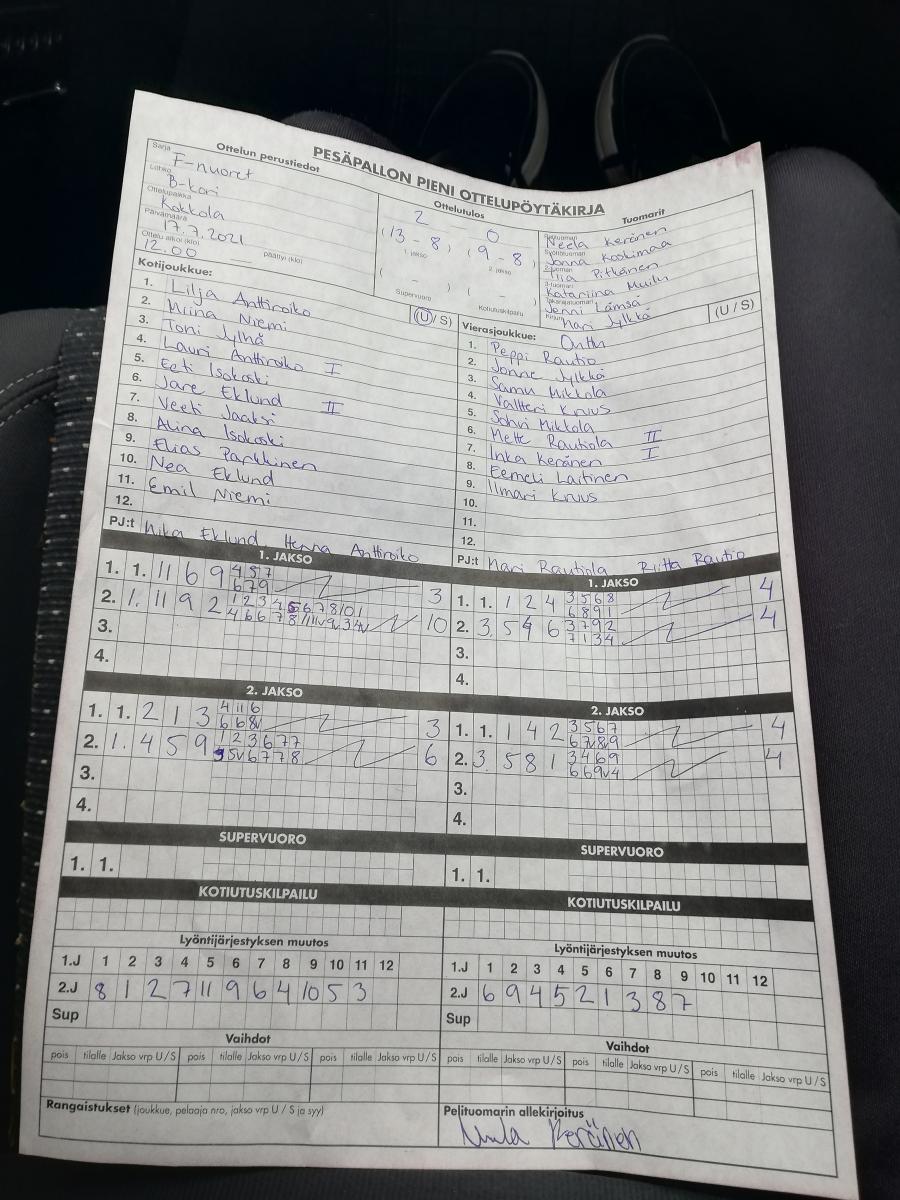 PESÄPALLON PIENI OTTELUPÖYTÄKIRJA
Ottelun perustiedot
Sarja F-nuoret
Lohko B-kori
Ottelupaikka Kokkola
Päivämäärä 17.7.2021
Ottelu alkoi (klo) 12.00 päättyi (klo)
Ottelutulos
2 - 0
(13 - 8) (9 - 8)
1. jakso 2. jakso
( - ) ( - )
Supervuoro Kotiutuskilpailu
Tuomarit
Neela Keränen
Jonna Koskimaa
Tiia Pitkänen
Katariina Muilu
Jenni Lämsä
Mari Jylkkä
Kotijoukkue: (U / S)
1. Lilja Anttiroiko
2. Miina Niemi
3. Toni Jylhä
4. Lauri Anttiroiko I
5. Eeti Isokoski
6. Jare Eklund II
7. Veeti Jaaksi
8. Alina Isokoski
9. Elias Parkkinen
10. Nea Eklund
11. Emil Niemi
12.
PJ:t Mika Eklund, Henna Anttiroiko
Vierasjoukkue: (U / S)
1. Peppi Rautio
2. Jonne Jylkkä
3. Samu Mikkola
4. Valtteri Kruus
5. Sohvi Mikkola
6. Mette Rautiola II
7. Inka Keränen I
8. Eemeli Laitinen
9. Ilmari Kruus
10.
11.
12.
PJ:t Mari Rautiola Riitta Rautio
1. JAKSO
1. 1. 11 6 9 4 5 7 3
6 7 9
2. 1. 11 9 2 10
3.
4.
1. JAKSO
1. 1. 1 2 4 3 5 6 8 4
6 8 9 1
2. 3. 5 9 6 3 7 9 2 4
7 1 3 4
3.
4.
2. JAKSO
1. 1. 2 1 3 4 11 6 3
6 6 8v
2. 1. 4 5 9 1 2 3 6 7 7 6
9 5v 6 7 7 8
3.
4.
2. JAKSO
1. 1. 1 4 2 3 5 6 7 4
6 7v 8 9
2. 3. 5 8 1 3 4 6 9 4
6 6 9v 4
3.
4.
SUPERVUORO
1. 1.
SUPERVUORO
1. 1.
KOTIUTUSKILPAILU
KOTIUTUSKILPAILU
Lyöntijärjestyksen muutos
1.J 1 2 3 4 5 6 7 8 9 10 11 12
2.J 8 1 2 7 11 9 6 4 10 5 3
Sup
Lyöntijärjestyksen muutos
1.J 1 2 3 4 5 6 7 8 9 10 11 12
2.J 6 9 4 5 2 1 3 8 7
Sup
Vaihdot
pois tilalle Jakso vrp U / S pois tilalle Jakso vrp U / S pois tilalle Jakso vrp U / S
Vaihdot
pois tilalle Jakso vrp U / S pois tilalle Jakso vrp U / S pois tilalle Jakso vrp U / S
Rangaistukset (joukkue, pelaaja nro, jakso vrp U / S ja syy)
Pelituomarin allekirjoitus
Keränen